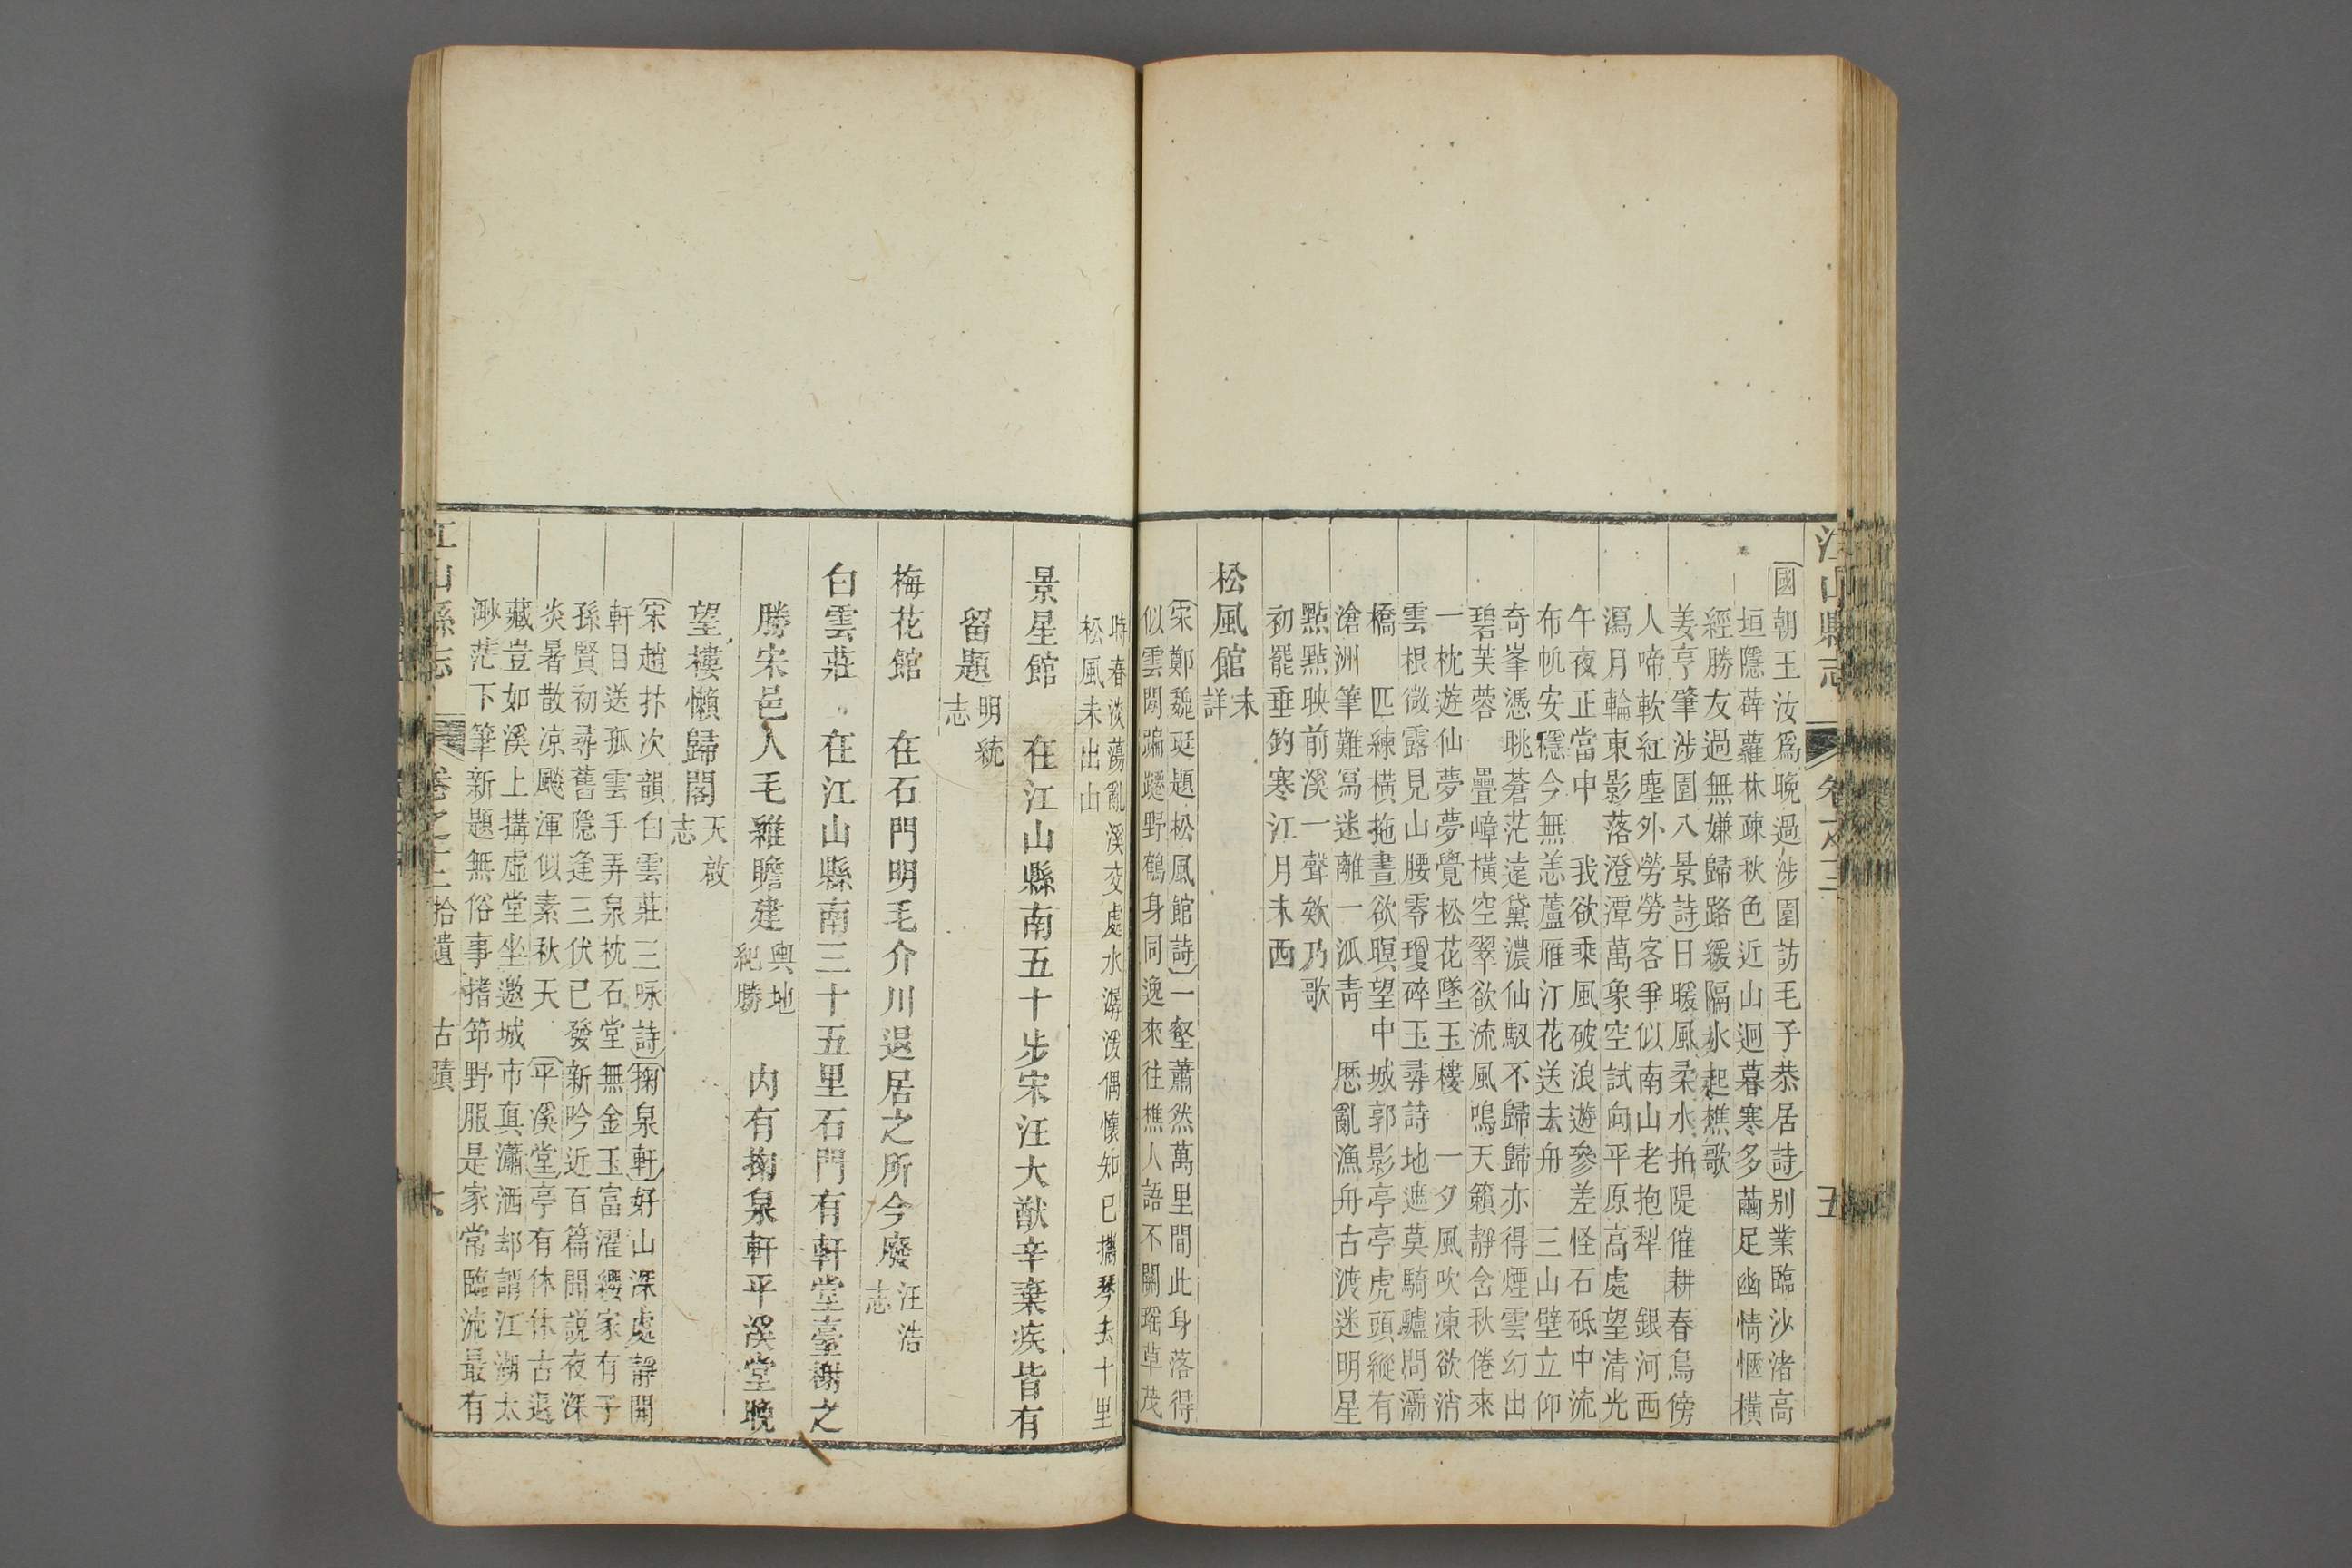 江山縣志 卷之三 五
國朝王汝爲晚過涉園訪毛子恭居詩別業臨沙渚高
垣隱薜蘿林疎秋色近山迴暮寒多繭足幽情愜橫
經勝友過無嫌歸路緩隔水起樵歌
姜亨肇涉園八景詩日暖風柔水拍隄催耕春鳥傍
人啼軟紅塵外勞勞客爭似南山老抱犁 銀河西
瀉月輪東影落澄潭萬象空試向平原高處望清光
午夜正當中 我欲乘風破浪遊參差怪石砥中流
布帆安穩今無恙蘆雁汀花送去舟 三山壁立仰
奇峯憑眺蒼茫遠黛濃仙馭不歸歸亦得煙雲幻出
碧芙蓉 疊嶂橫空翠欲流風嗚天籟靜含秋倦來
一枕遊仙夢夢覺松花墜玉樓 一夕風吹凍欲消
雲根微露見山腰零瓊碎玉尋詩地遮莫騎驢問灞
橋 匹練橫拖晝欲暝望中城郭影亭亭虎頭縱有
滄洲筆難寫迷離一派青 愿亂漁舟古渡迷明星
點點映前溪一聲欸乃歌
初罷垂釣寒江月未西
松風館 未詳
宋鄭魏珽題松風館詩一壑蕭然萬里間此身落得
似雲閑蹁躚野鶴身同逸來往樵人語不關瑶草茂
時春淡蕩亂溪交處水潺湲偶懷知己攜琴去十里
松風未出山
景星館 在江山縣南五十步宋汪大猷辛棄疾皆有
留題 明統志
梅花館 在石門明毛介川退居之所今廢 汪浩志
白雲莊 在江山縣南三十五里石門有軒堂臺榭之
勝宋邑人毛雍瞻建 輿地紀勝 内有掬泉軒平溪堂晚
望樓懶歸閣 天啟志
宋趙抃次韻白雲莊三咏詩掬泉軒好山深處靜開
軒目送孤雲手弄泉枕石堂無金玉富濯纓家有子
孫賢初尋舊隱逢三伏已發新吟近百篇聞説夜深
炎暑散凉颷渾似素秋天 平溪堂亭有休休古退
藏豈如溪上搆虛堂坐邀城市真瀟洒却謂江湖太
渺茫下筆新題無俗事搘笻野服是家常臨流最有
江山縣志 卷之三 拾遺 古蹟 六